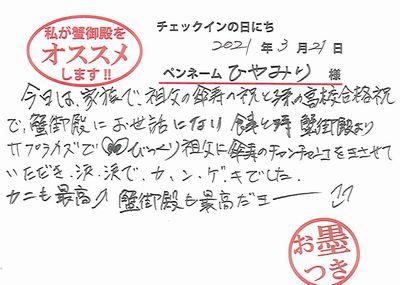 私が蟹御殿を
オススメ
します!!
チェックインの日にち
2021 年 3 月 21 日
ペンネーム ひやみり 様
今日は、家族で、祖父の傘寿の祝と孫の高校合格祝
で、蟹御殿にお世話になり 食事と時 蟹御殿より
サプライズで びっくり祖父に傘寿のチャンチャンコをきさせて
いただき、涙、涙で、カ、ン、ゲ、キでした。
カニも最高 蟹御殿も最高だヨー
お墨
つき